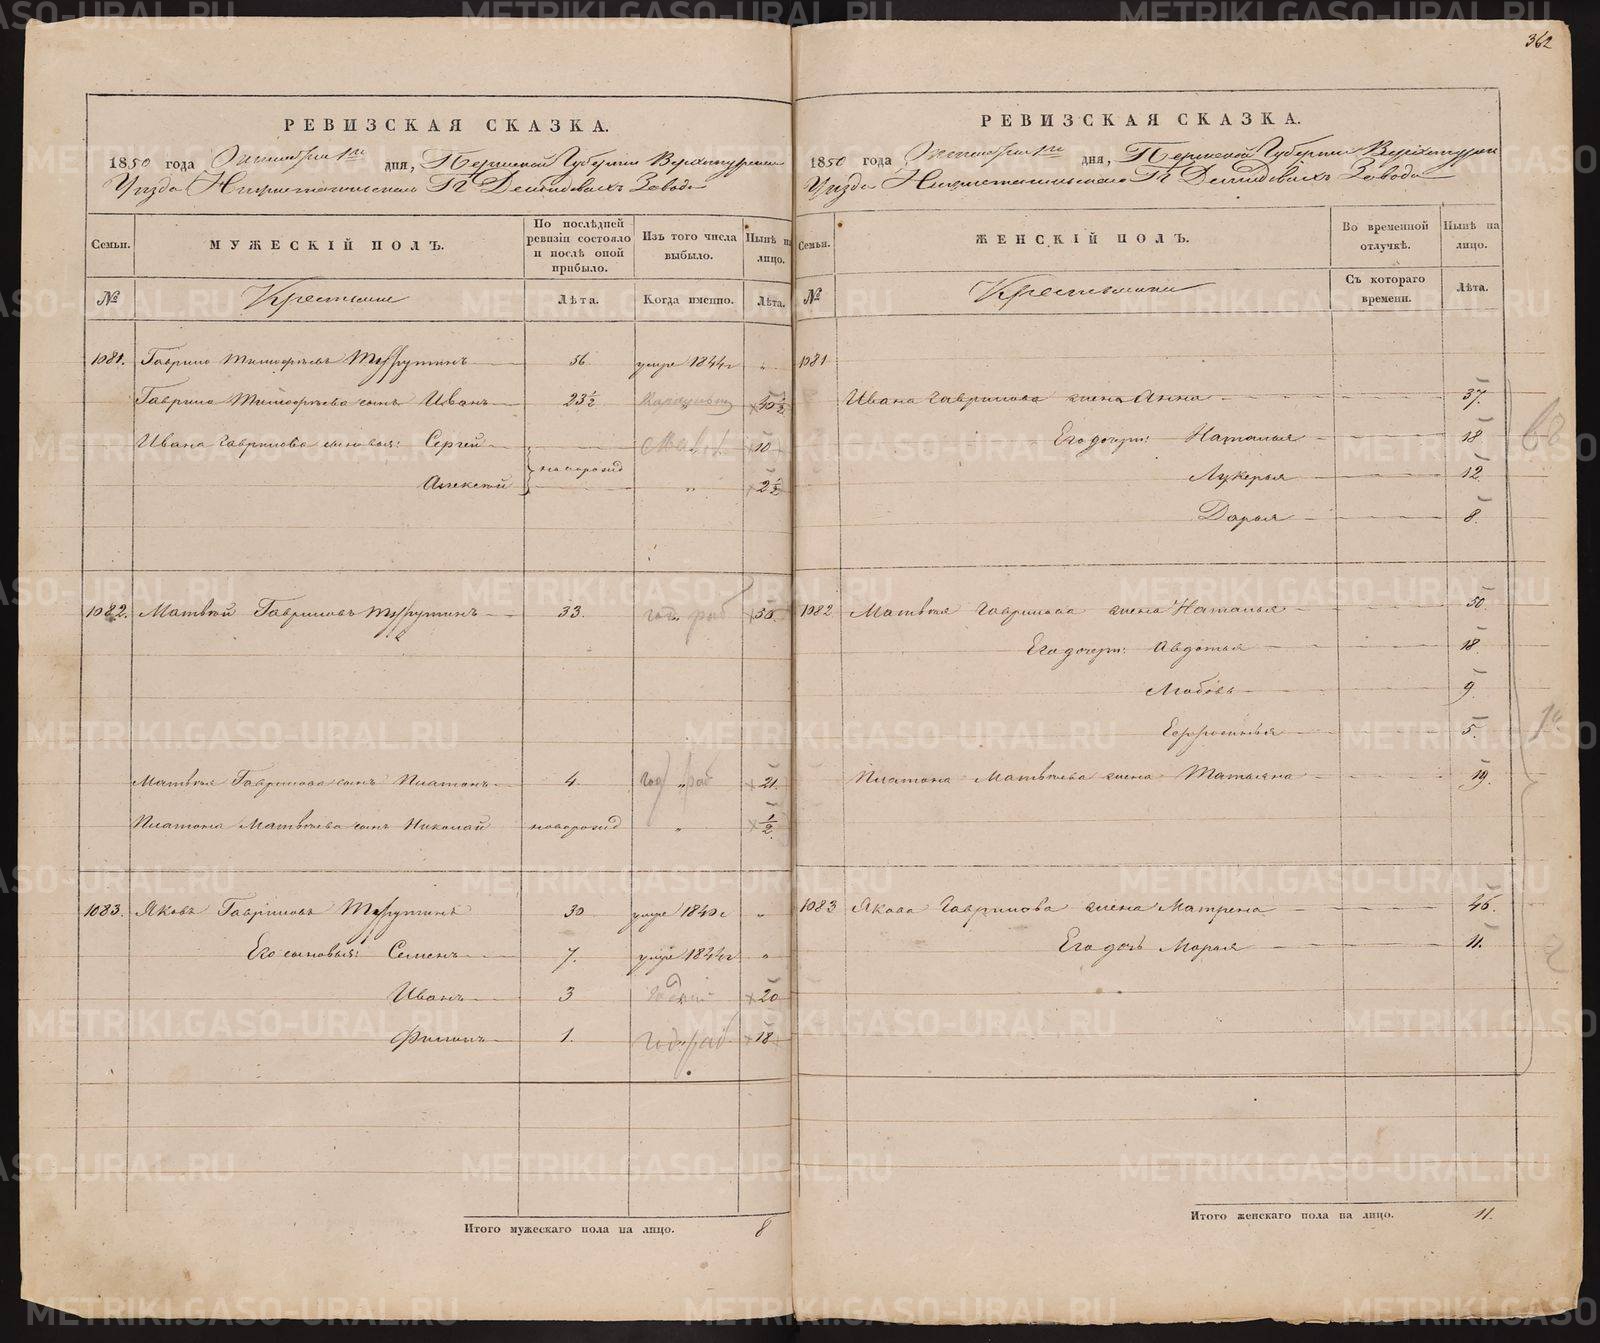 362
РЕВИЗСКАЯ СКАЗКА.
1850 года Октября 1го дня, Пермской Губернiи Верхотурскаго
Уѣзда Нижнетагильскаго Гг Демидовыхъ Завода
Семьи.
МУЖЕСКIЙ ПОЛЪ.
По послѣдней ревизiи состояло и послѣ оной прибыло.
Изъ того числа выбыло.
Нынѣ на лицо.
№
Крестьяне
Лѣта.
Когда именно.
Лѣта.
1081. Гаврило Тимофеевъ 56 умре 1844г "
Гаврило Тимофеева сынъ Иванъ 23½ " 40½
Ивана Гаврилова сыновья: Сергей новорожд 10
Алексей " 2½
1082. Матвей Гавриловъ 33. год раб 50
Матвея Гаврилова сынъ Платонъ 4. год " раб 21
Платона Матвеева сынъ Николай новорожд " ½
1083. Яковъ Гавриловъ 30 умре 1840г "
Его сыновья: Семенъ 7. умре 1844г "
Иванъ 3 20
Филипъ 1. год раб 18
Итого мужескаго пола на лицо. 8
РЕВИЗСКАЯ СКАЗКА.
1850 года Октября 1го дня, Пермской Губернiи Верхотурскаго
Уѣзда Нижнетагильскаго Гг Демидовыхъ Завода
Семьи.
ЖЕНСКIЙ ПОЛЪ.
Во временной отлучкѣ.
Нынѣ на лицо.
№
Крестьянки
Съ котораго времени.
Лѣта.
1081
Ивана Гаврилова жена Анна 37
Его дочери: Наталья 18
Лукерья 12
Дарья 8.
1082 Матвея Гаврилова жена Наталья 50.
Его дочери: Авдотья 18
Любовь 9
Ефросинья 5.
Платона Матвеева жена Татьяна 19.
1083 Якова Гаврилова жена Матрена 46.
Его дочь Марья 11.
Итого женскаго пола на лицо. 11.
METRIKI.GASO-URAL.RU